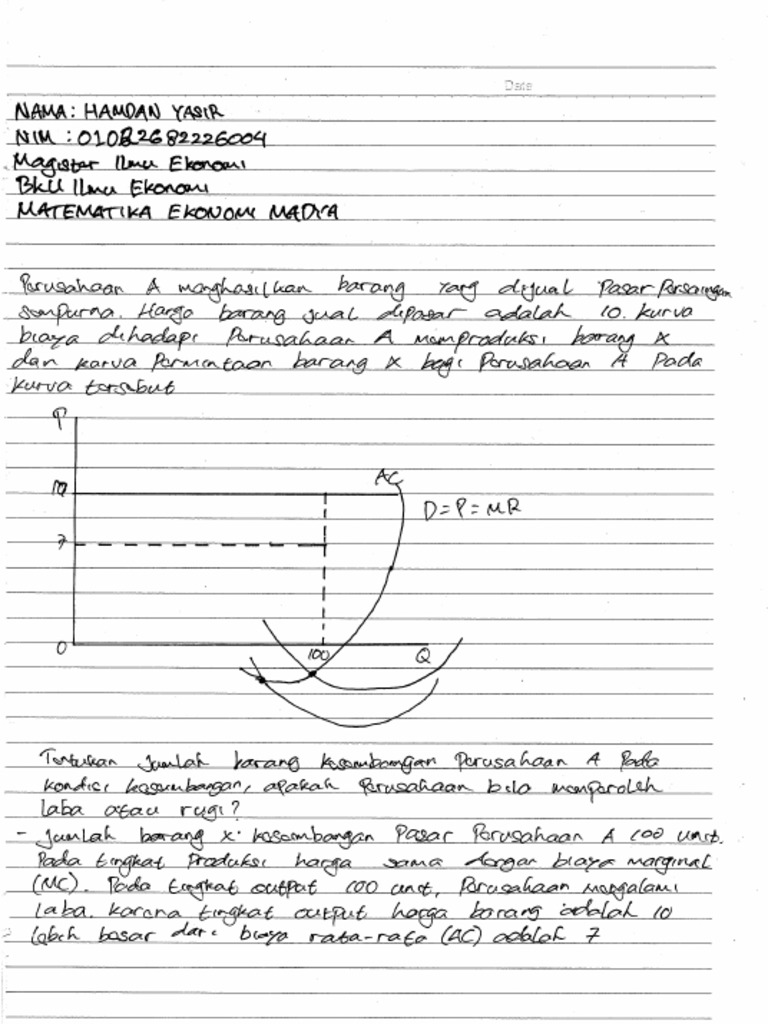 Date
NAMA: HAMDAN YASIR
NIM : 01022682226004
Magister Ilmu Ekonomi
BKU Ilmu Ekonomi
MATEMATIKA EKONOMI MADYA
Perusahaan A menghasilkan barang yang dijual Pasar Persaingan
sempurna. Harga barang jual dipasar adalah 10. kurva
biaya dihadapi Perusahaan A memproduksi barang X
dan kurva Permintaan barang X bagi Perusahaan A Pada
kurva tersebut
P
10
AC
D=P=MR
7
0
100
Q
Tentukan jumlah barang keseimbangan Perusahaan A Pada
kondisi keseimbangan, apakah Perusahaan bila memperoleh
laba atau rugi?
- Jumlah barang X. keseimbangan Pasar Perusahaan A 100 unit.
Pada tingkat Produksi harga sama dengan biaya marginal
(MC). Pada tingkat output 100 unit, Perusahaan mengalami
laba. karena tingkat output harga barang adalah 10
lebih besar dari biaya rata-rata (AC) adalah 7